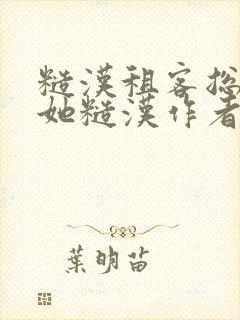 糙漢租客總
她糙漢作者
葉明苗